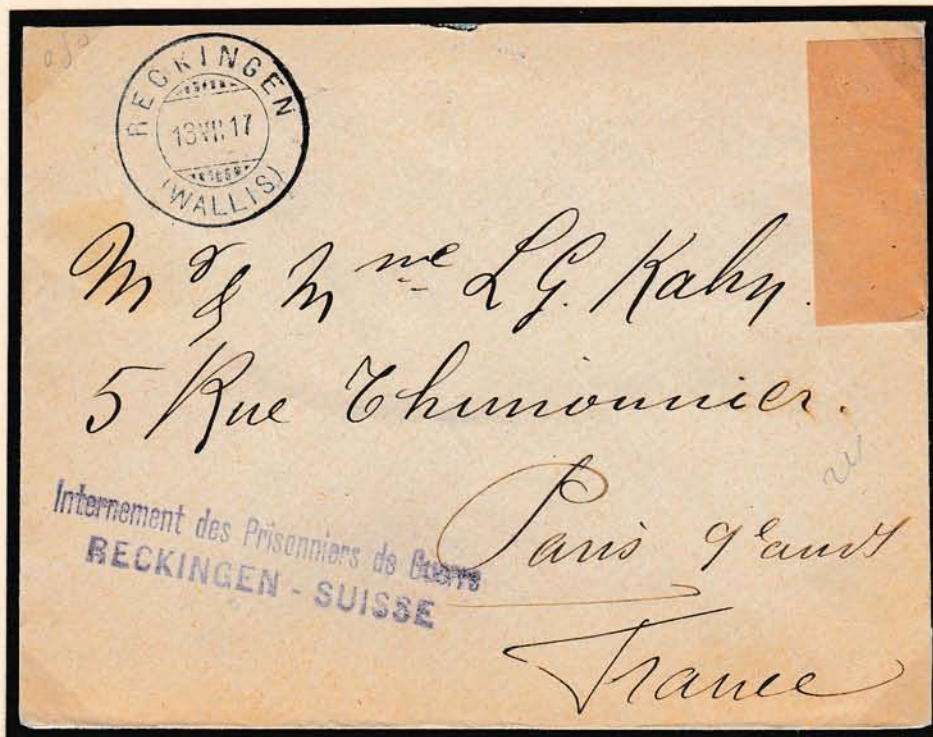 RECKINGEN
13 VII 17
(WALLIS)
Mr & Mme L.G. Kahn.
5 Rue Thimonnier.
Paris 9e arrdt
France
Internement des Prisonniers de Guerre
RECKINGEN - SUISSE